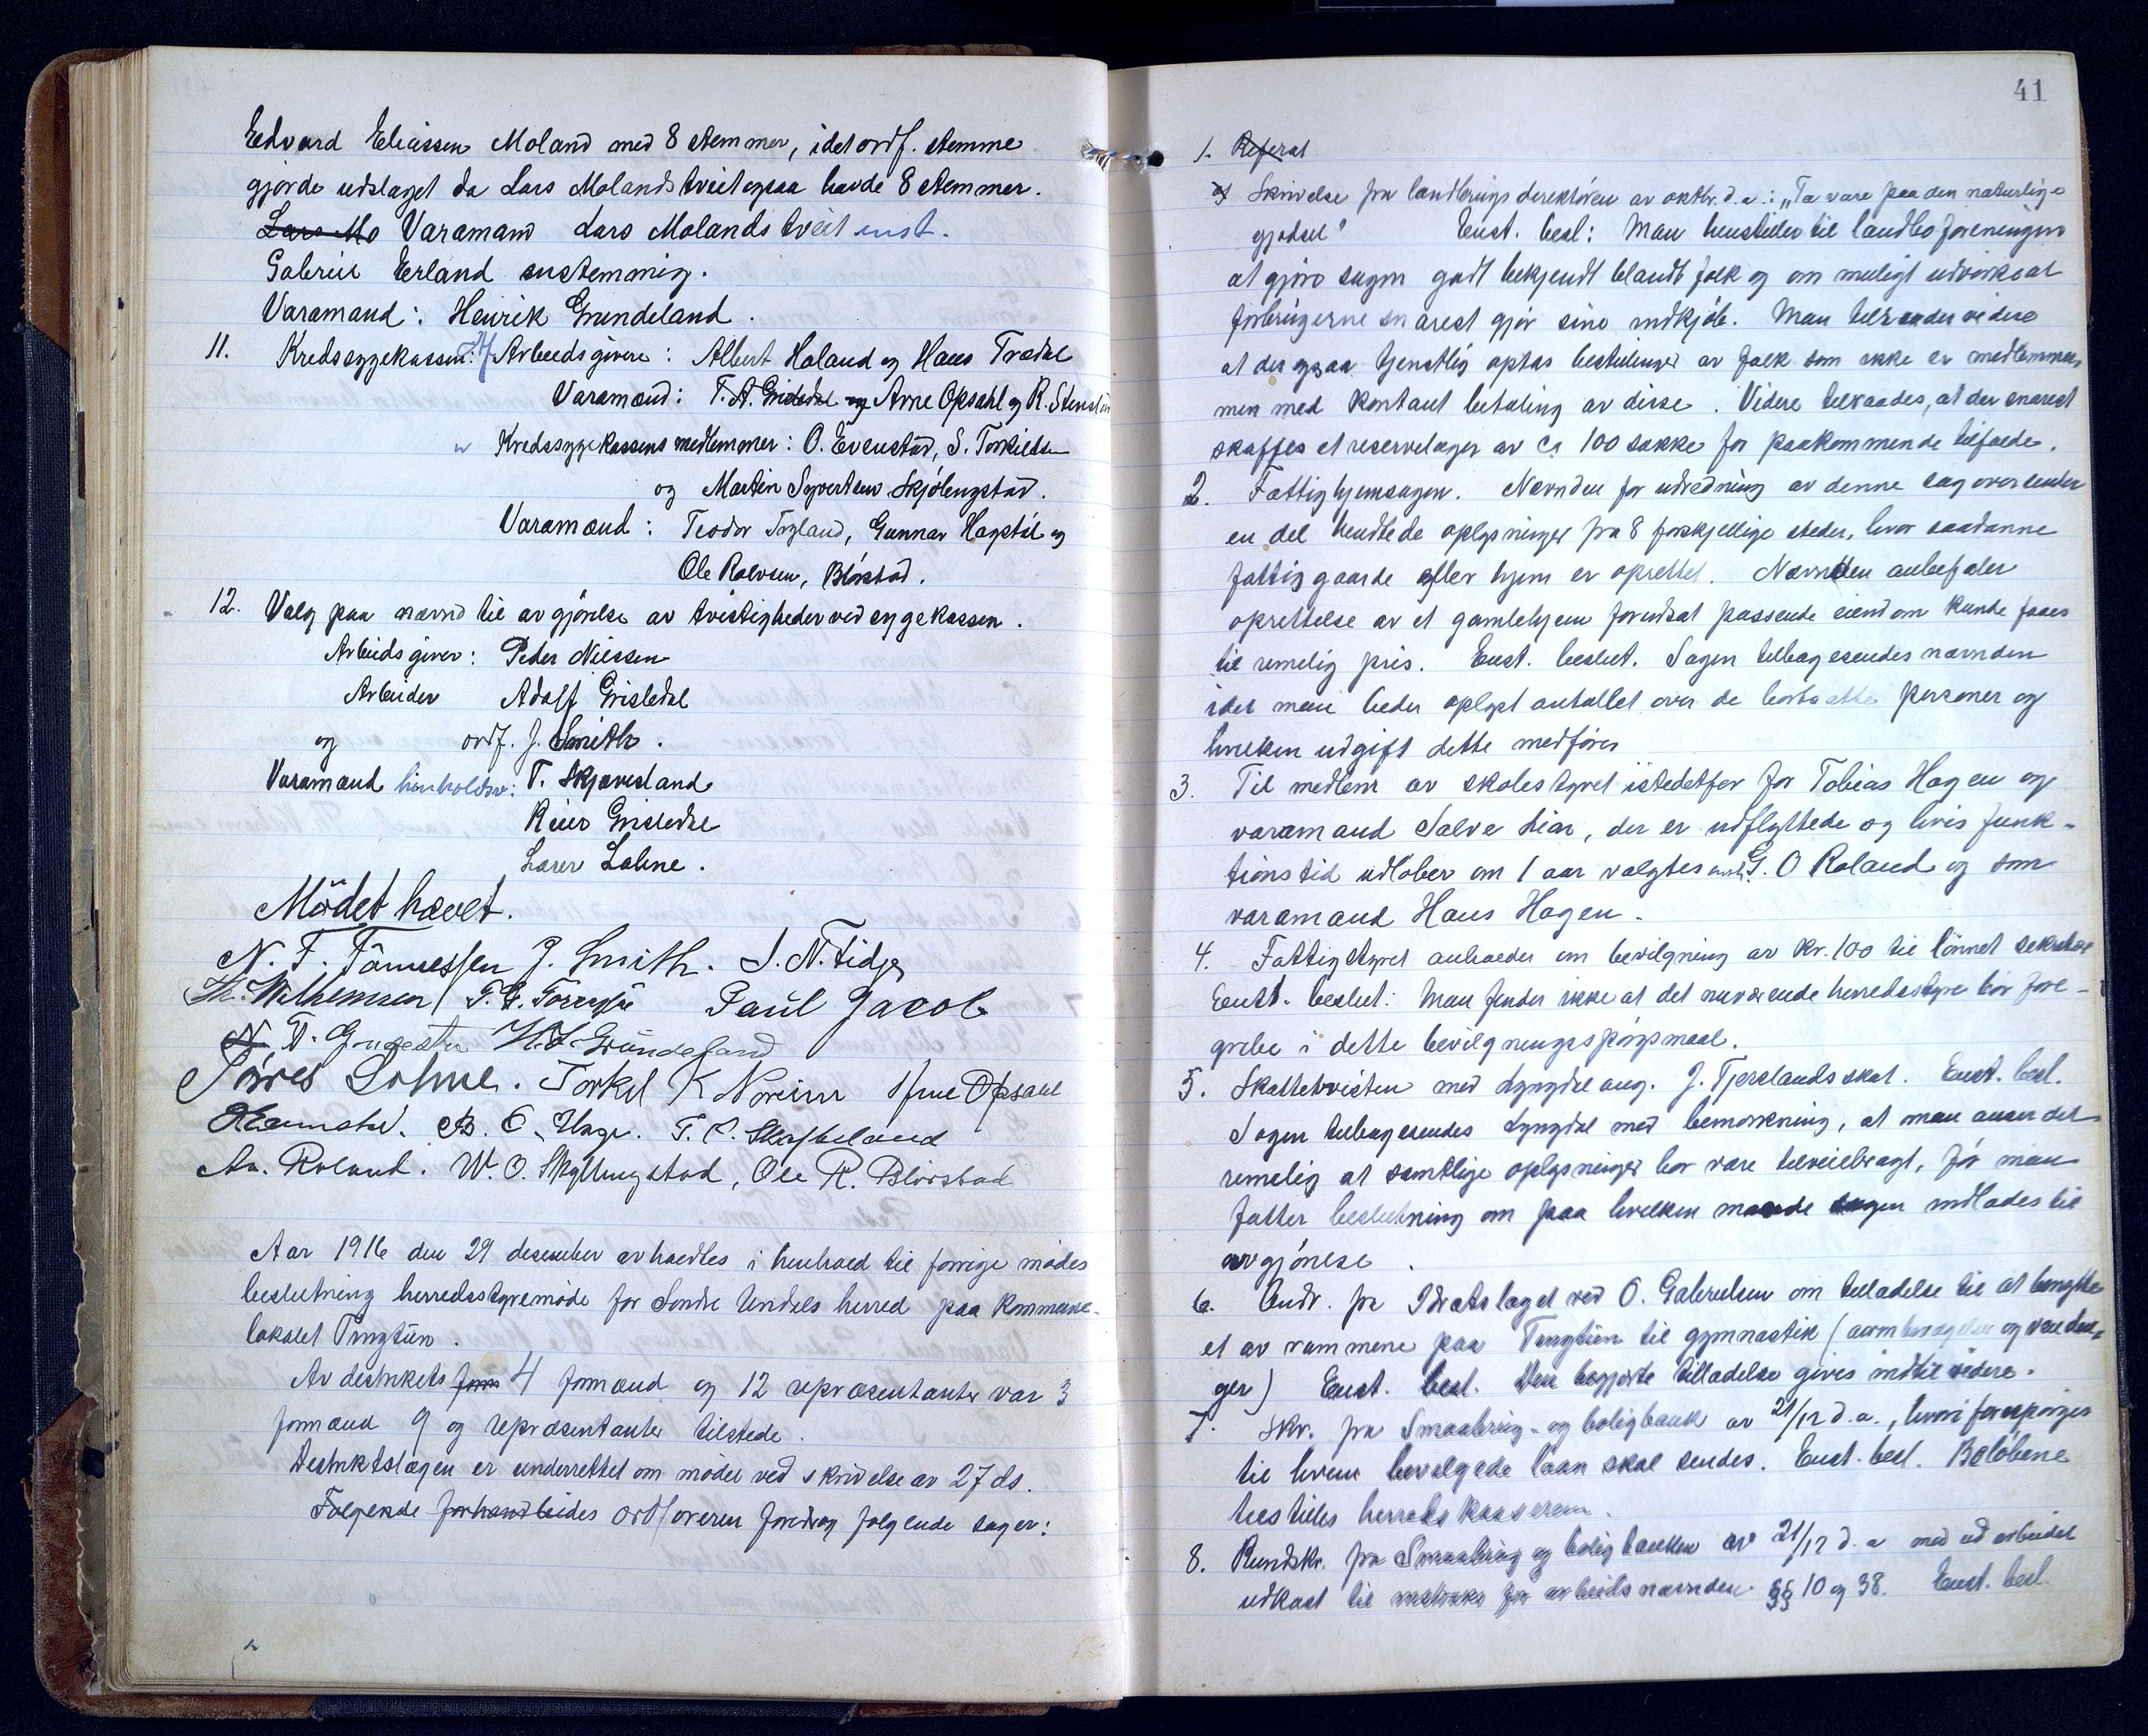 Edvard Eliassen Moland med 8 stemmer, idet ordf. stemme
gjorde udslaget da Lars Molandstveit ogsaa havde 8 stemmer.
Lars Mo Varamand Lars Molandstveit enst.
Gabriel Erland enstemmig.
Varamand: Henrik Grundeland.
11. Kredssygekassen: Arbeidsgivere: Albert Holand og Hans Trædal
Varamænd: T. A. Grisledal og Arne Opsahl og R.
Kredssygekassens medlemmer: O. Evenstad, S. Torkildsen
og Martin Syvertsen Skjölingstad.
Varamænd: Teodor Fogland, Gunnar Hagstöl og
Ole Rolvsen, Blörstad.
12. Valg paa nævnd til avgjörelse av tvistigheder ved sygekassen.
Arbeidsgiver: Peder Nilssen
Arbeider Adolf Grisledal
og ordf. J. Smith.
Varamænd henholdsv: T. Skjævesland
Reier Grisledal
Lærer Lohne.
Mödet hævet.
N. F. Tönnessen J. Smith. S. N. Lidje
Th. Wilhemsen T. G. Paul Jacob
N T. H. S. Gründeland
Törres Lohne. Torkel K Noreim Arne Opsahl
O Evenstad. B. O. Hage. T. C.
An. Roland. W. O. Skyllingstad, Ole R. Blörstad
Aar 1916 den 29 desember avholdtes i henhold til forrige mödes
beslutning herredsstyremöde for Söndre Undals herred paa kommune-
lokalet Tingtún.
Av destriktets form 4 formænd og 12 repræsentanter var 3
formænd 9 og repræsentanter tilstede.
Destriktslægen er underrettet om mödet ved skrivelse av 27 ds.
Fölgende forhandledes ordföreren foredrog fölgende sager:
41
1. Referat
a) Skrivelse fra landbrugsdirektören av oktbr. d. a.: "Ta vare paa den naturlige
gjödsel" Enst. besl: Man henstiller til landboforeningen
at gjöre sagen godt bekjendt blandt folk og om muligt udvirke at
forbrugerne snarest gjör sine indkjöb. Man tilraader videre
at der ogsaa tjenstlig optas bestillinger av folk som ikke er medlemmer,
men med kontant betaling av disse. Videre tilraades, at der snarest
skaffes et reservelager av ca 100 sække for paakommende tilfælde.
2. Fattighjemsagen. Nævnden for udredning av denne sag oversender
en del hendtede oplysninger fra 8 forskjellige steder, hvor saadanne
fattiggaarde eller hjem er oprettet. Nævnden anbefaler
oprettelse av et gamlehjem forudsat passende eiendom kunde faaes
til rimelig pris. Enst. beslut. Sagen tilbagesendes nævnden
idet man beder oplyst antallet over de bortsatte personer og
hvilken udgift dette medförer
3. Til medlem av skolestyret istedetfor for Tobias Hagen og
varamand Salve Lian, der er udflyttede og hvis funk-
tionstid udlöber om 1 aar valgtes enst. G. O Roland og som
varamand Hans Hagen.
4. Fattigstyret anholder om bevilgning av kr. 100 til lönnet sekretær
Enst. beslut: Man finder ikke at det nuværende herredsstyre bör fore-
gribe i dette bevilgningsspörgsmaal.
5. Skattetvisten med Lyngdal ang. J. Tjerslands skat. Enst. besl.
Sagen tilbagesendes Lyngdal med bemærkning, at man anser det
rimelig at samtlige oplysninger bör være tilveiebragt, för man
fatter beslutning om paa hvilken maade sagen indlades til
avgjörelse.
6. Andr. fra Idrætslaget ved O. Gabrielsen om tilladelse til at benytte
et av rummene paa Tingtún til gymnastik (armbevægelser og vendin-
ger) Enst. besl. Den begjærte tilladelse gives indtil videre.
7. Skr. fra Smaabrug- og boligbank av 21/12 d. a., hvori forespörges
til hvem bevilgede laan skal sendes. Enst. besl. Belöbene
tilstilles herredskassereren.
8. Rundskr. fra Smaabrug og boligbanken av 21/12 d. a med ud arbeidet
udkast til instruks for arbeidsnævnden §§ 10 og 38. Enst. besl.